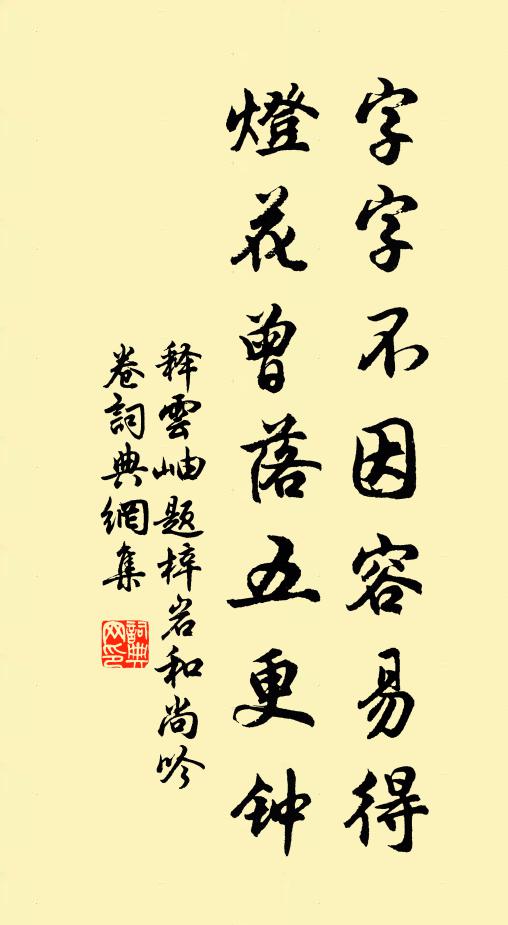 字字不因容易得
燈花曾落五更钟
释雲岫題梓岩和尚吟
卷詞典網集
詞典
网印